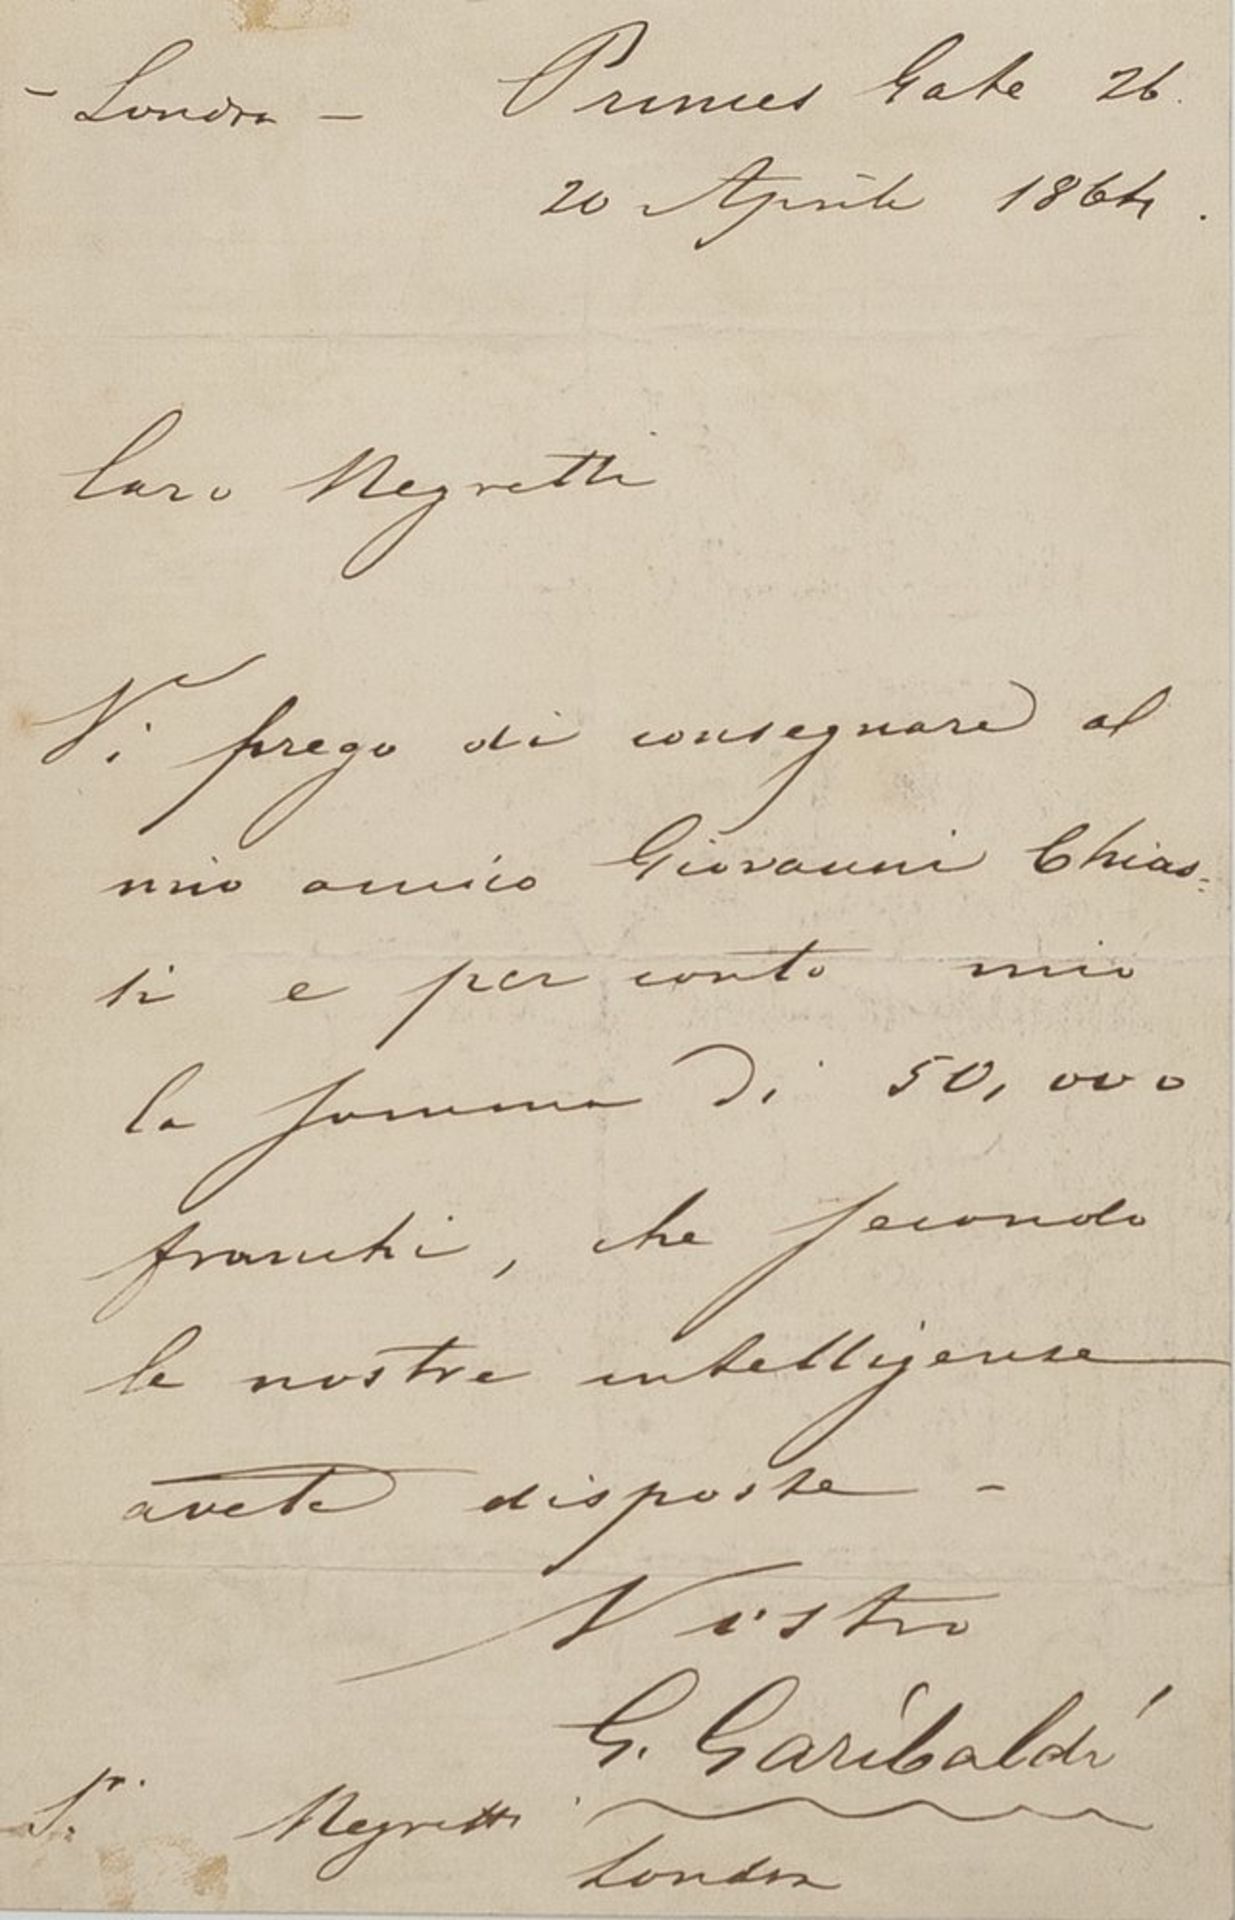 - Londra - Princes Gate 26.
20 Aprile 1864.
Caro Negretti
Vi prego di consegnare al
mio amico Giovanni Chias=
si e per conto mio
la somma di 50,000
franchi, che secondo
le nostre intelligenze
avete disposte -
Vostro
G. Garibaldi
Sr. Negretti
Londra